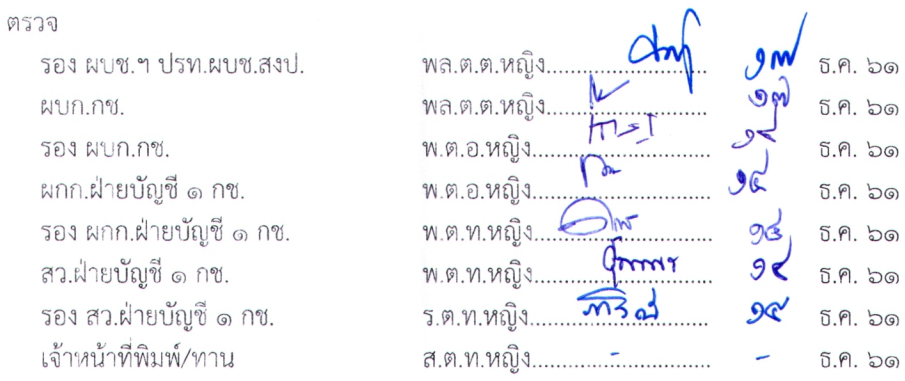 ตรวจ
รอง ผบช.ฯ ปรท.ผบช.สงป. พล.ต.ต.หญิง.............................. ๑๗ ธ.ค. ๖๑
ผบก.กช. พล.ต.ต.หญิง.............................. ๑๗ ธ.ค. ๖๑
รอง ผบก.กช. พ.ต.อ.หญิง.............................. ธ.ค. ๖๑
ผกก.ฝ่ายบัญชี ๑ กช. พ.ต.อ.หญิง.............................. ๑๔ ธ.ค. ๖๑
รอง ผกก.ฝ่ายบัญชี ๑ กช. พ.ต.ท.หญิง.............................. ๑๔ ธ.ค. ๖๑
สว.ฝ่ายบัญชี ๑ กช. พ.ต.ท.หญิง.............................. ๑๔ ธ.ค. ๖๑
รอง สว.ฝ่ายบัญชี ๑ กช. ร.ต.ท.หญิง.............................. ๑๔ ธ.ค. ๖๑
เจ้าหน้าที่พิมพ์/ทาน ส.ต.ท.หญิง..............-............... - ธ.ค. ๖๑